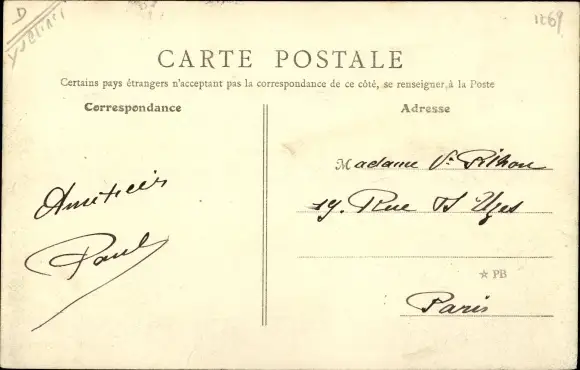 D
1269
CARTE POSTALE
Certains pays étrangers n'acceptant pas la correspondance de ce côté, se renseigner à la Poste
Correspondance
Adresse
Amitiés
Paul
Madame Vve Pithou
19. Rue d'Uzes
★ PB
Paris